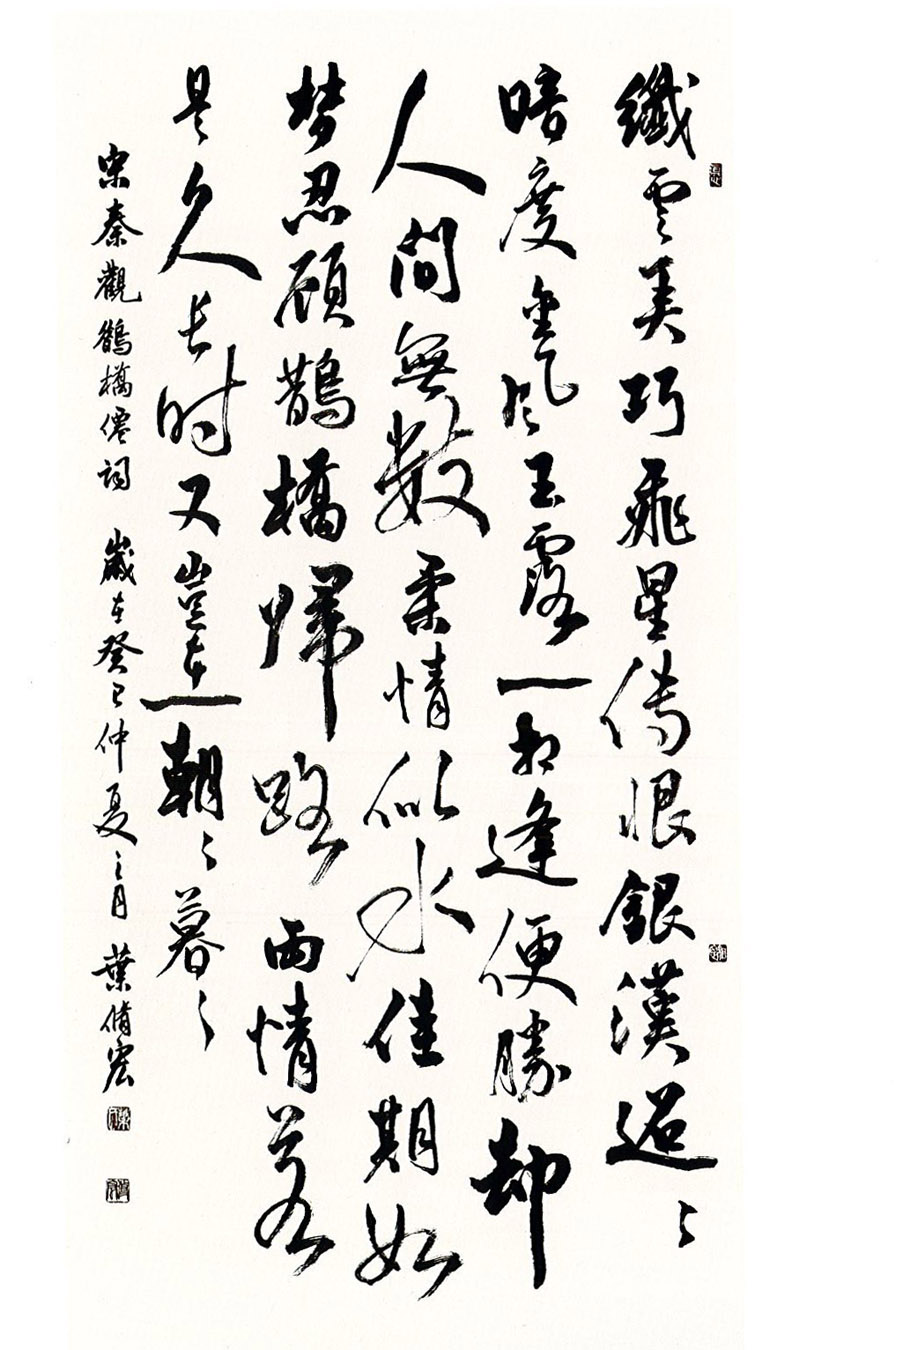 纖雲弄巧飛星傳恨銀漢迢〻
暗度金風玉露一相逢便勝却
人間無數柔情似水佳期如
梦忍顧鵲橋歸路兩情若
是久長时又豈在一朝〻暮〻
宋秦觀鵲橋僊詞 歲在癸巳仲夏之月 葉脩宏